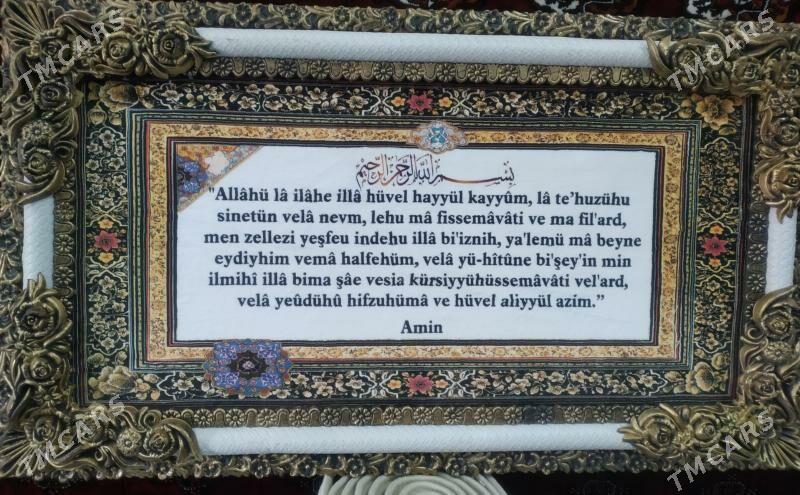 TMCARS
TMCARS
بِسْمِ اللهِ الرَّحْمٰنِ الرَّحِيمِ
"Allâhü lâ ilâhe illâ hüvel hayyül kayyûm, lâ te'huzühu
sinetün velâ nevm, lehu mâ fissemâvâti ve ma fil'ard,
men zellezi yeşfeu indehu illâ bi'iznih, ya'lemü mâ beyne
eydiyhim vemâ halfehüm, velâ yü-hîtûne bi'şey'in min
ilmihî illâ bima şâe vesia kürsiyyühüssemâvâti vel'ard,
velâ yeûdühû hifzuhümâ ve hüvel aliyyül azim.”
Amin
TMCARS
TMCARS